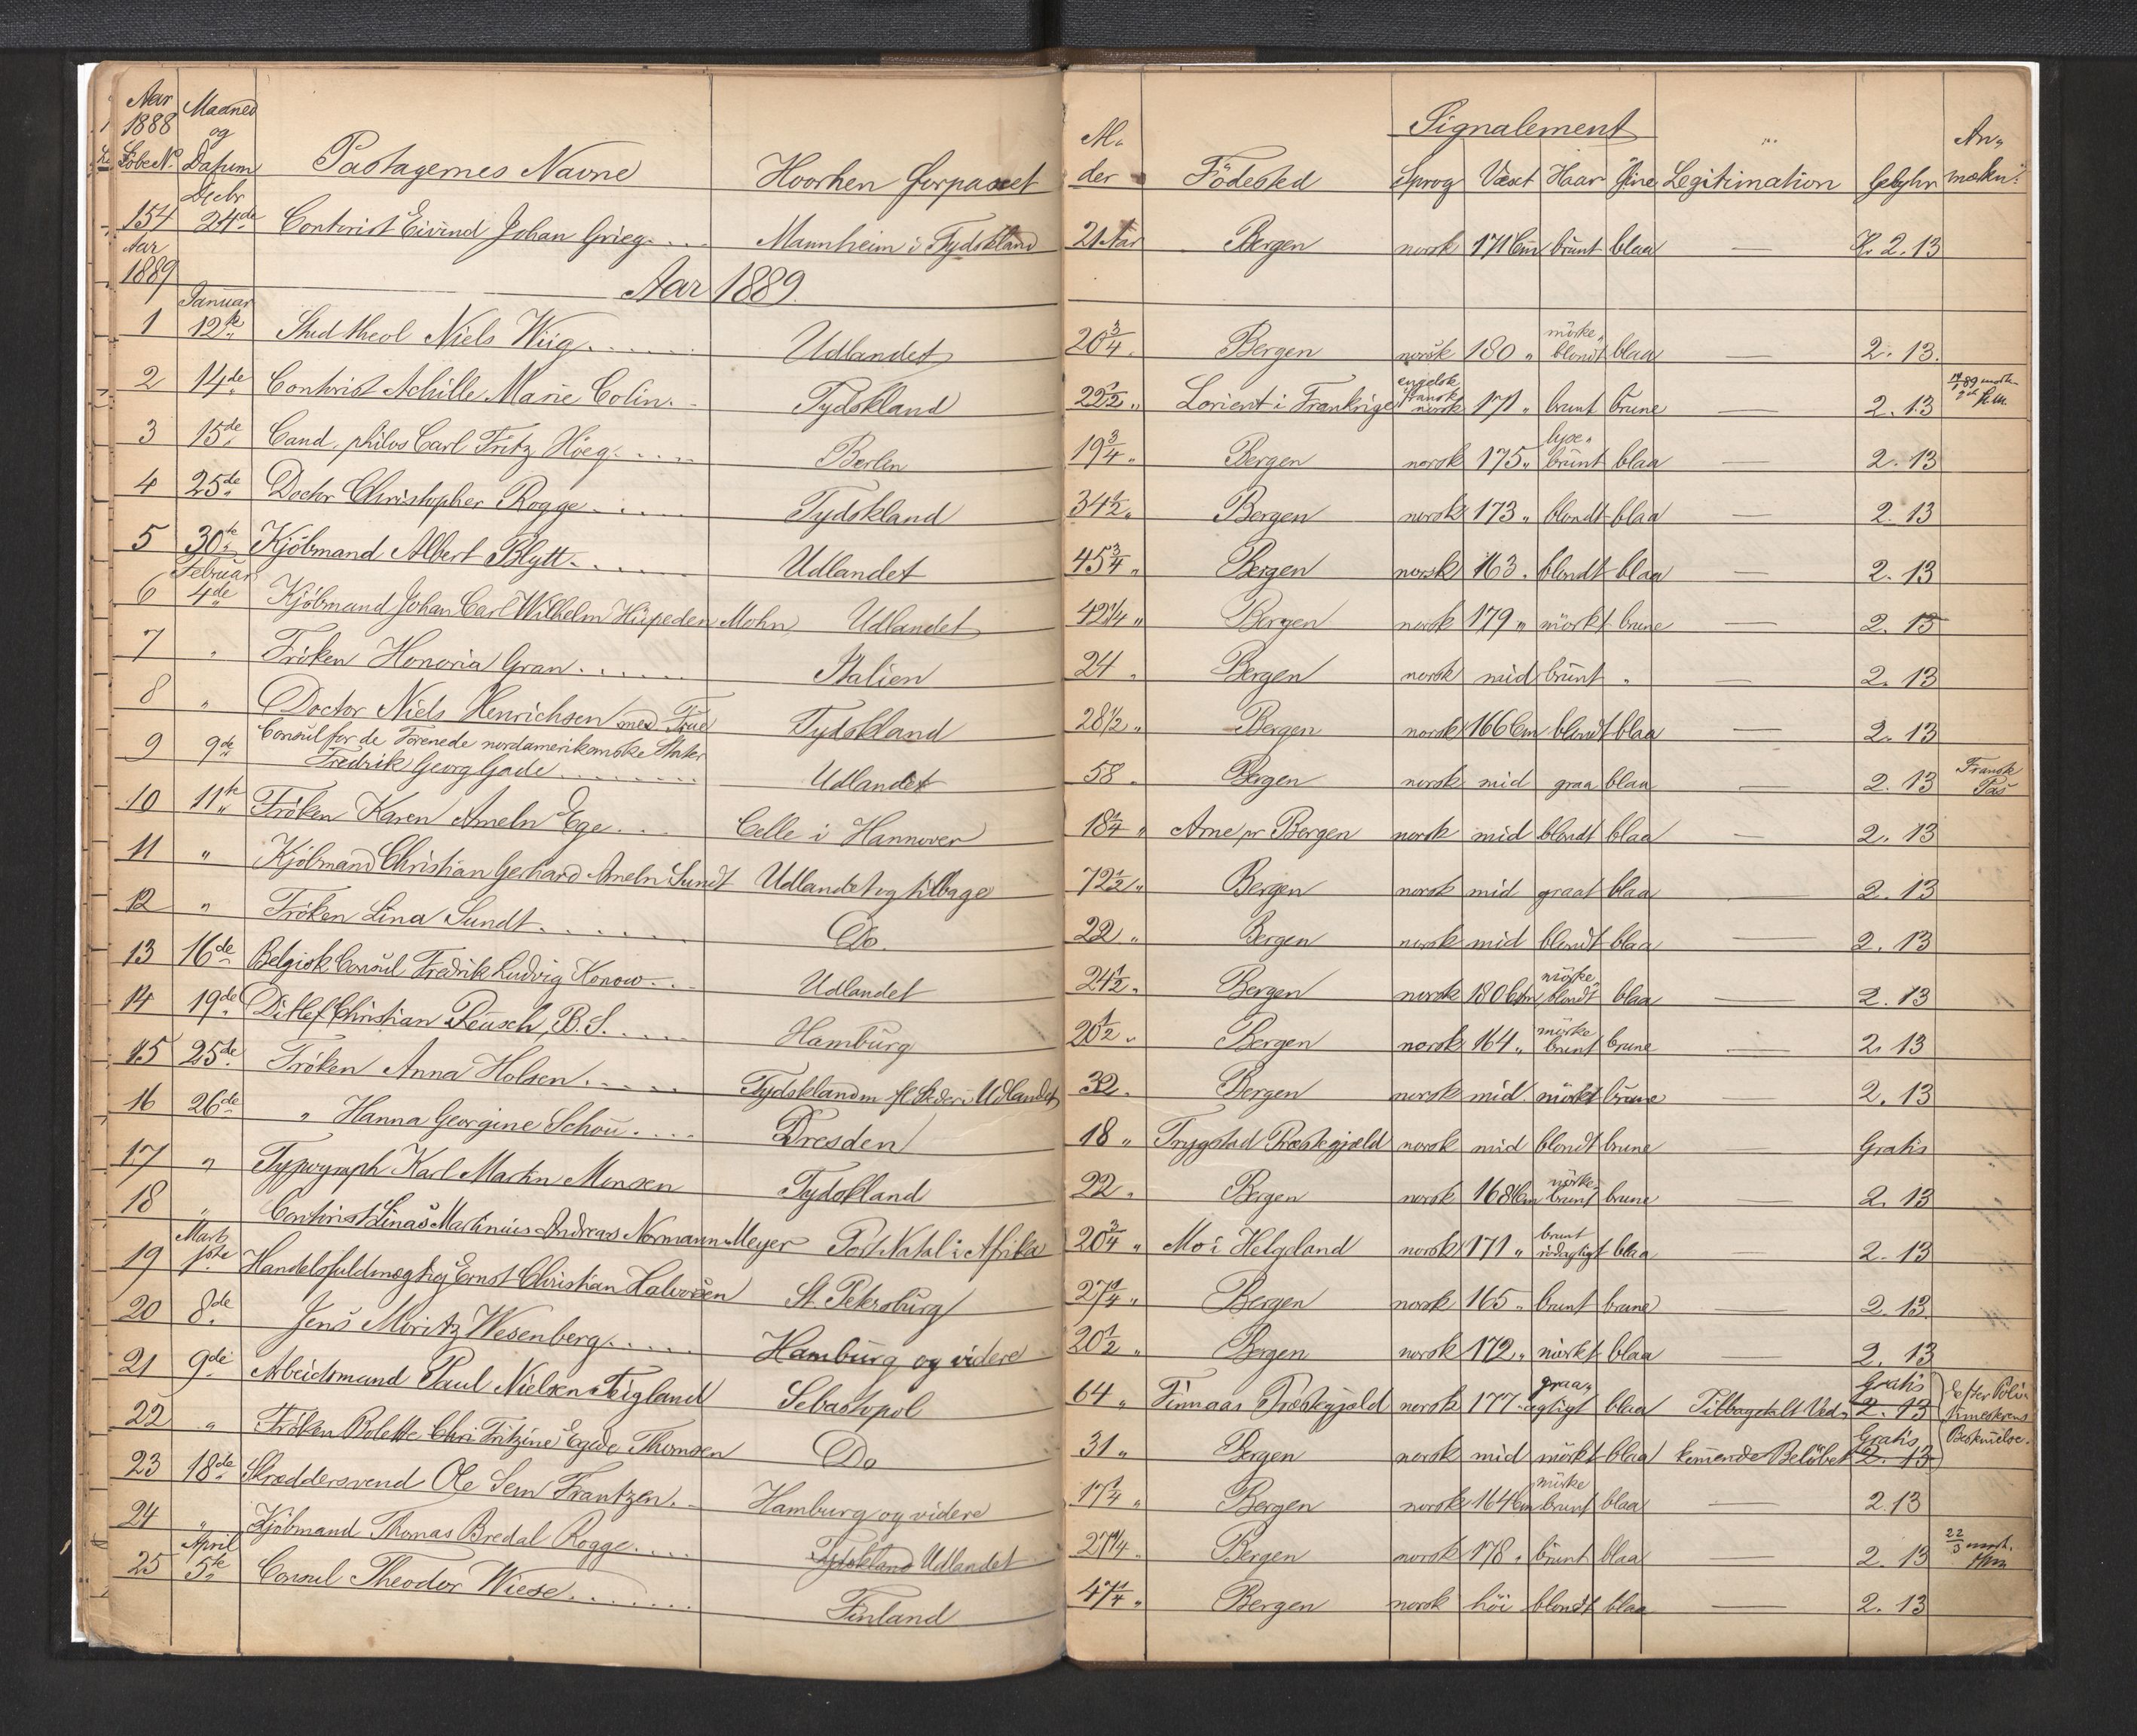 Aar 1888 Løbe No. Maaned og Datum Pastagernes Navne Hvorhen forpasset Al- der Födested Signalement Sprog Væxt Haar Øine Legitimation Gebyhr An- mærkn.
154 Decbr 24de Contorist Eivind Johan Grieg.... Mannheim i Tydskland 21 Aar Bergen norsk 171 Cm brunt blaa — Kr 2. 13
Aar 1889 Aar 1889.
1 Januar 12te Stud theol Niels Wiig...... Udlandet 20 3/4 Bergen norsk 180 " mörke blondt blaa — 2. 13.
2 14de Contorist Achille Marie Colin.. Tydskland 22 1/2 " Lorient i Frankrige engelsk fransk norsk 171 " brunt brune — 2. 13
3 15de Cand. philos Carl Fritz Höeg..... Berlin 19 3/4 " Bergen norsk 175 " lyse" brunt blaa — 2. 13
4 25de Doctor Christopher Rogge...... Tydskland 34 1/2 " Bergen norsk 173 " blondt blaa — 2. 13
5 30te Kjöbmand Albert Blytt...... Udlandet 45 3/4 " Bergen norsk 163 " blondt blaa — 2. 13
6 Februar 4de Kjöbmand Johan Carl Wilhelm Hüpeden Mohn Udlandet 42 1/4 " Bergen norsk 179 " mörkt brune — 2. 13
7 " Fröken Honoria Gran...... Italien 24 " Bergen norsk mid brunt " — 2. 13
8 " Doctor Niels Henrichsen med Frue Tydskland 28 1/2 " Bergen norsk 166 Cm blondt blaa — 2. 13
9 9de Consul for de Forenede nordamerikanske Stater
Fredrik Georg Gade........ Udlandet 58 " Bergen norsk mid graa blaa — 2. 13 Fransk Pas
10 11te Fröken Karen Ameln Ege.... Celle i Hannover 18 1/4 " Arne pr Bergen norsk mid blondt blaa — 2. 13
11 " Kjöbmand Christian Gerhard Ameln Sundt Udlandet og tilbage 72 1/2 " Bergen norsk mid graat blaa — 2. 13
12 " Fröken Lina Sundt....... Do. 22 " Bergen norsk mid blondt blaa — 2. 13
13 16de Belgisk Consul Fredrik Ludvig Konow... Udlandet 24 1/2 " Bergen norsk 180 Cm mörke blondt blaa — 2. 13
14 19de Ditlef Christian Reusch, B. S..... Hamburg 20 1/2 " Bergen norsk 164 " mörke brunt brune — 2. 13
15 25de Fröken Anna Holsen..... Tydskland m fl Steder i Udlandet 32 " Bergen norsk mid mörkt brune — 2. 13
16 26de " Hanna Georgine Schou.... Dresden 18 " Trygstad Præstegjæld norsk mid blondt brune — Gratis
17 " Typograph Karl Martin Monsen Tydskland 22 " Bergen norsk 168 Cm mörke brunt brune — 2. 13
18 " Contorist Linas Martinius Andreas Normann Meyer Port Natal i Afrika 20 3/4 " Mo i Helgeland norsk 171 " brunt blaa 2. 13
19 Marts 1ste Handelsfuldmægtig Ernst Christian Halvorsen St. Petersburg 27 1/4 " Bergen norsk 165 " brunt brune — 2. 13.
20 8de Jens Moritz Wesenberg...... Hamburg og videre 20 1/2 " Bergen norsk 172 " mörkt blaa 2. 13
21 9de Arbeidsmand Paul Nielsen Tigland Sebastopol 64 " Finnaas Præstegjæld norsk 177 " graa" agtigt blaa Tilbagetalt Ved- Gratis 2. 13 Efter
22 " Fröken Bolette Chri Fritzine Egede Thomsen Do 31 " Bergen norsk mid mörkt blaa kommende Belöbet Gratis 2. 13 Bestemmelse.
23 18de Skræddersvend Ole Sem Frantzen.. Hamburg og videre 17 1/4 " Bergen norsk 164 Cm mörke brunt blaa — 2. 13
24 " Kjöbmand Thomas Bredal Rogge.... Tydskland Udlandet 27 1/4 " Bergen norsk 178 " brunt blaa — 2. 13 22/3
25 April 5te Consul Theodor Wiese........ Finland 47 1/4 " Bergen norsk höi blondt blaa — 2. 13